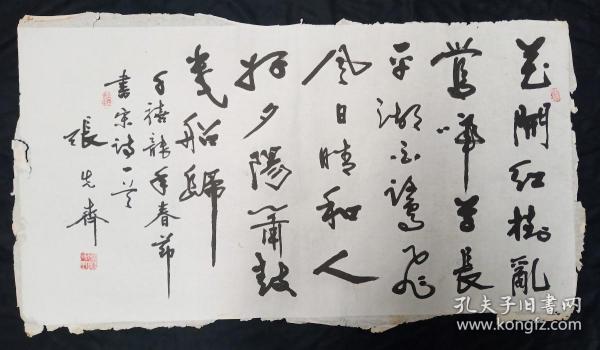 花開紅樹亂
鶯啼草長
平湖白鷺飛
風日晴和人
好夕陽簫鼓
幾船歸
千禧龍年春節
書宋詩一首
張先
孔夫子旧書网
www.kongfz.com